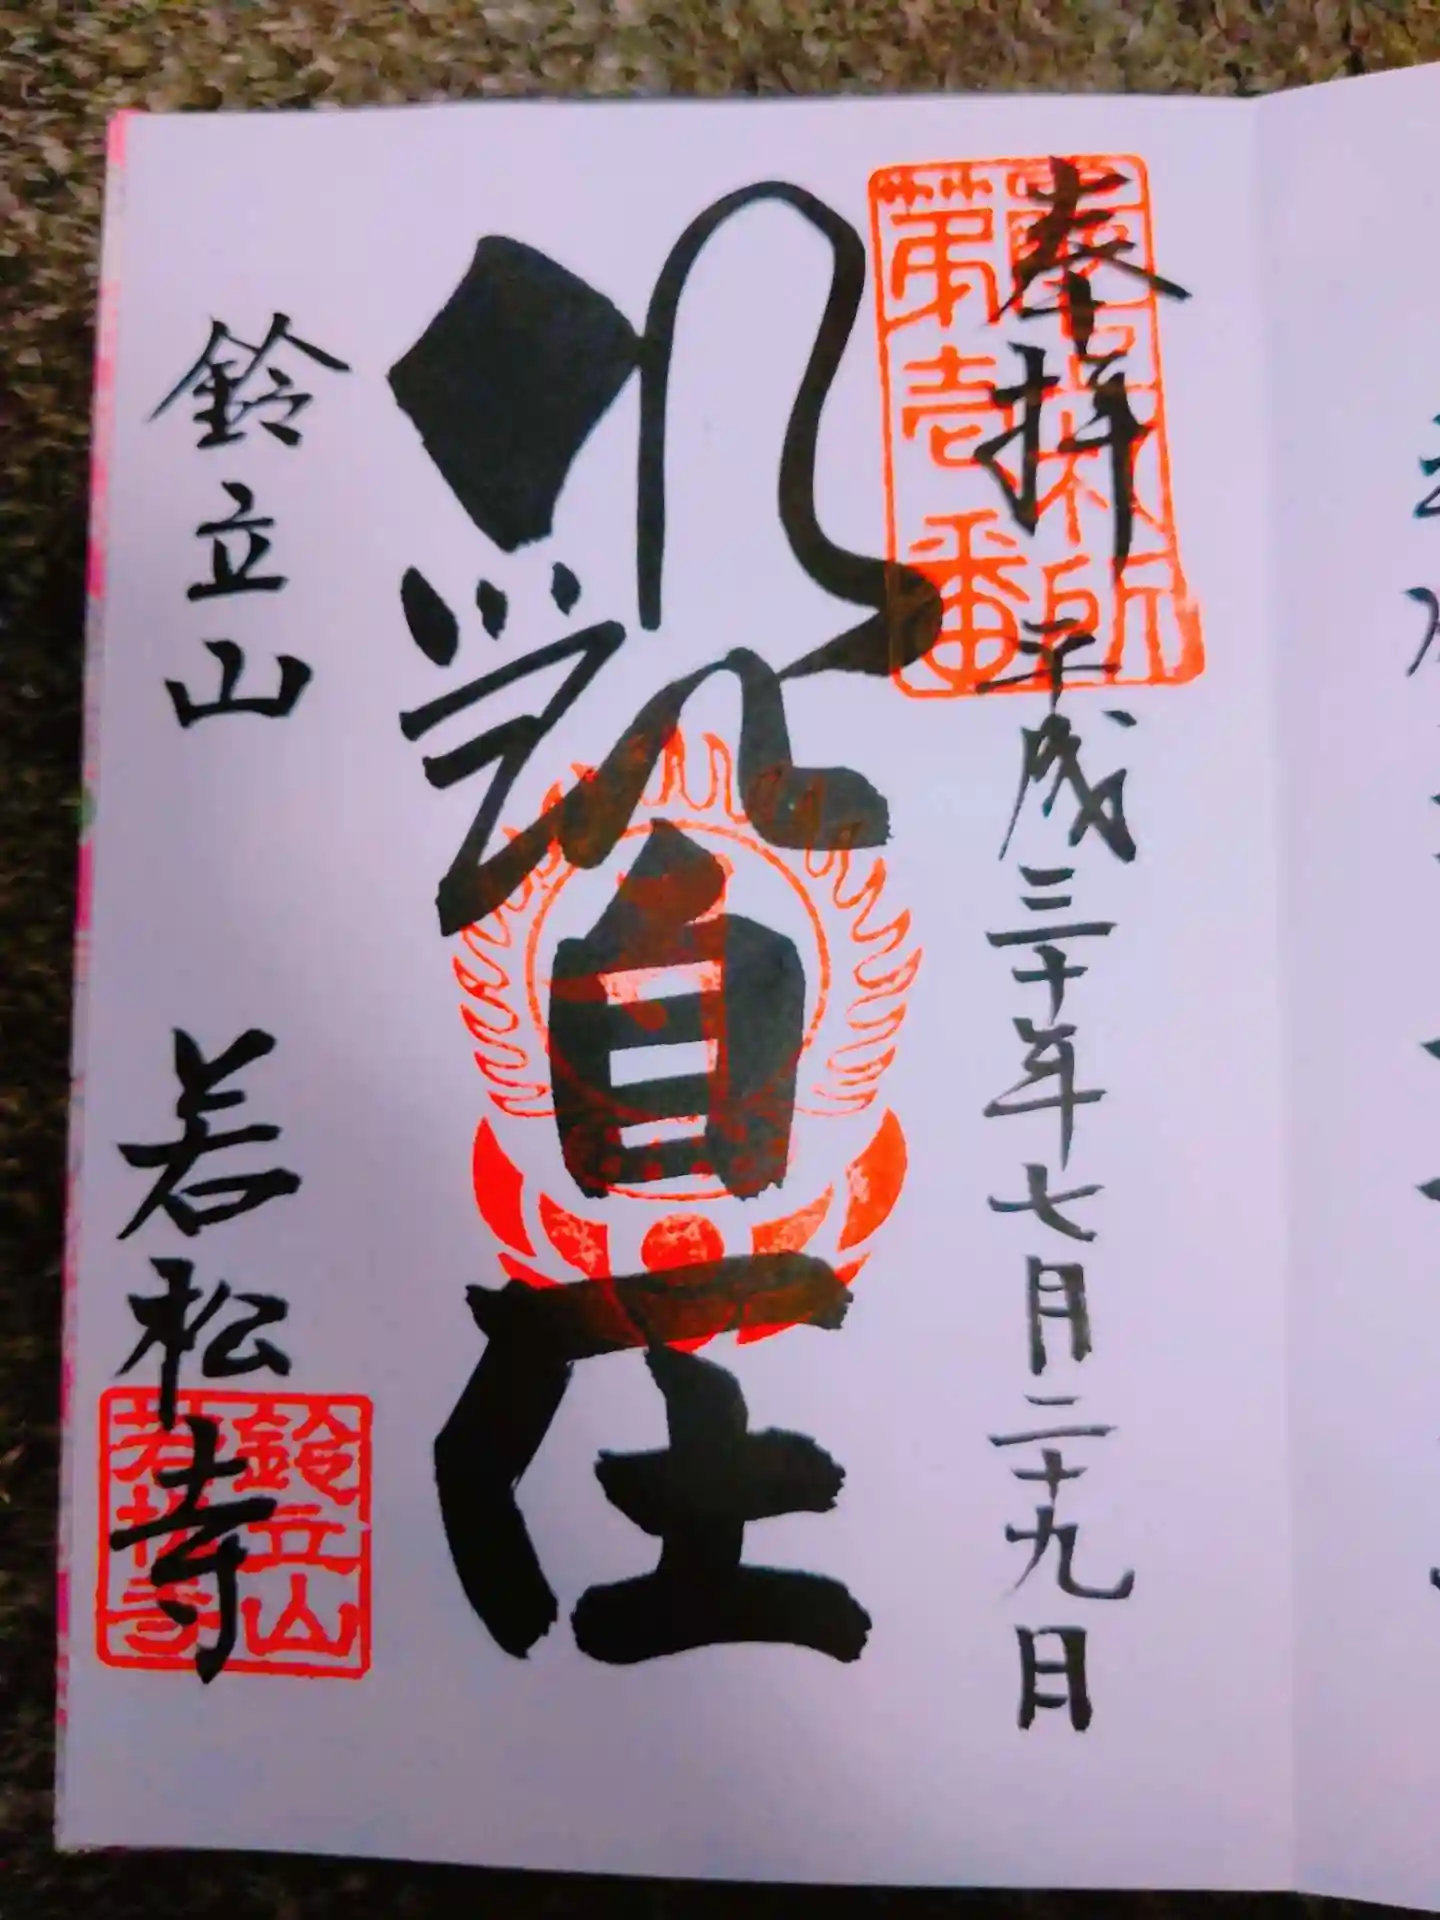 奉拝 平成三十年七月二十九日
最上札所
第壱番
観自在
鈴立山 若松寺
鈴立山
若松寺